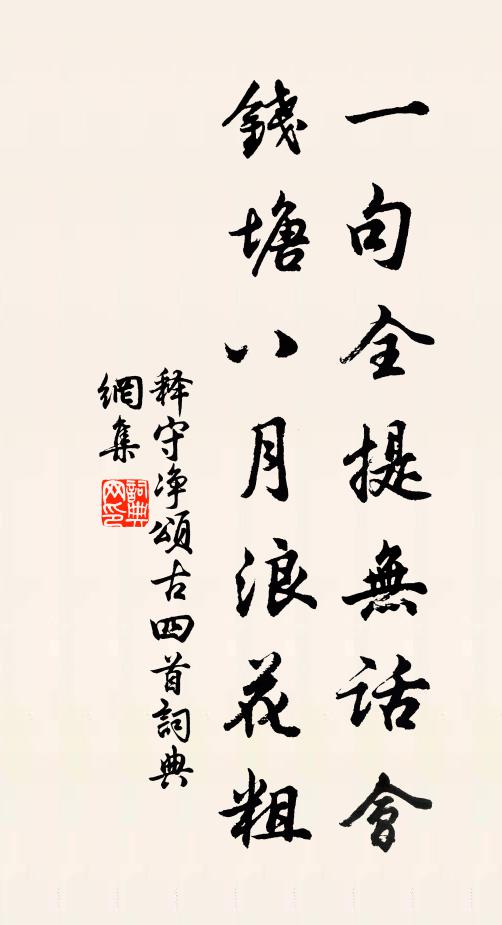 一句全提無話會
錢塘八月浪花粗
释守净頌古四首詞典
網集
詞典
网印